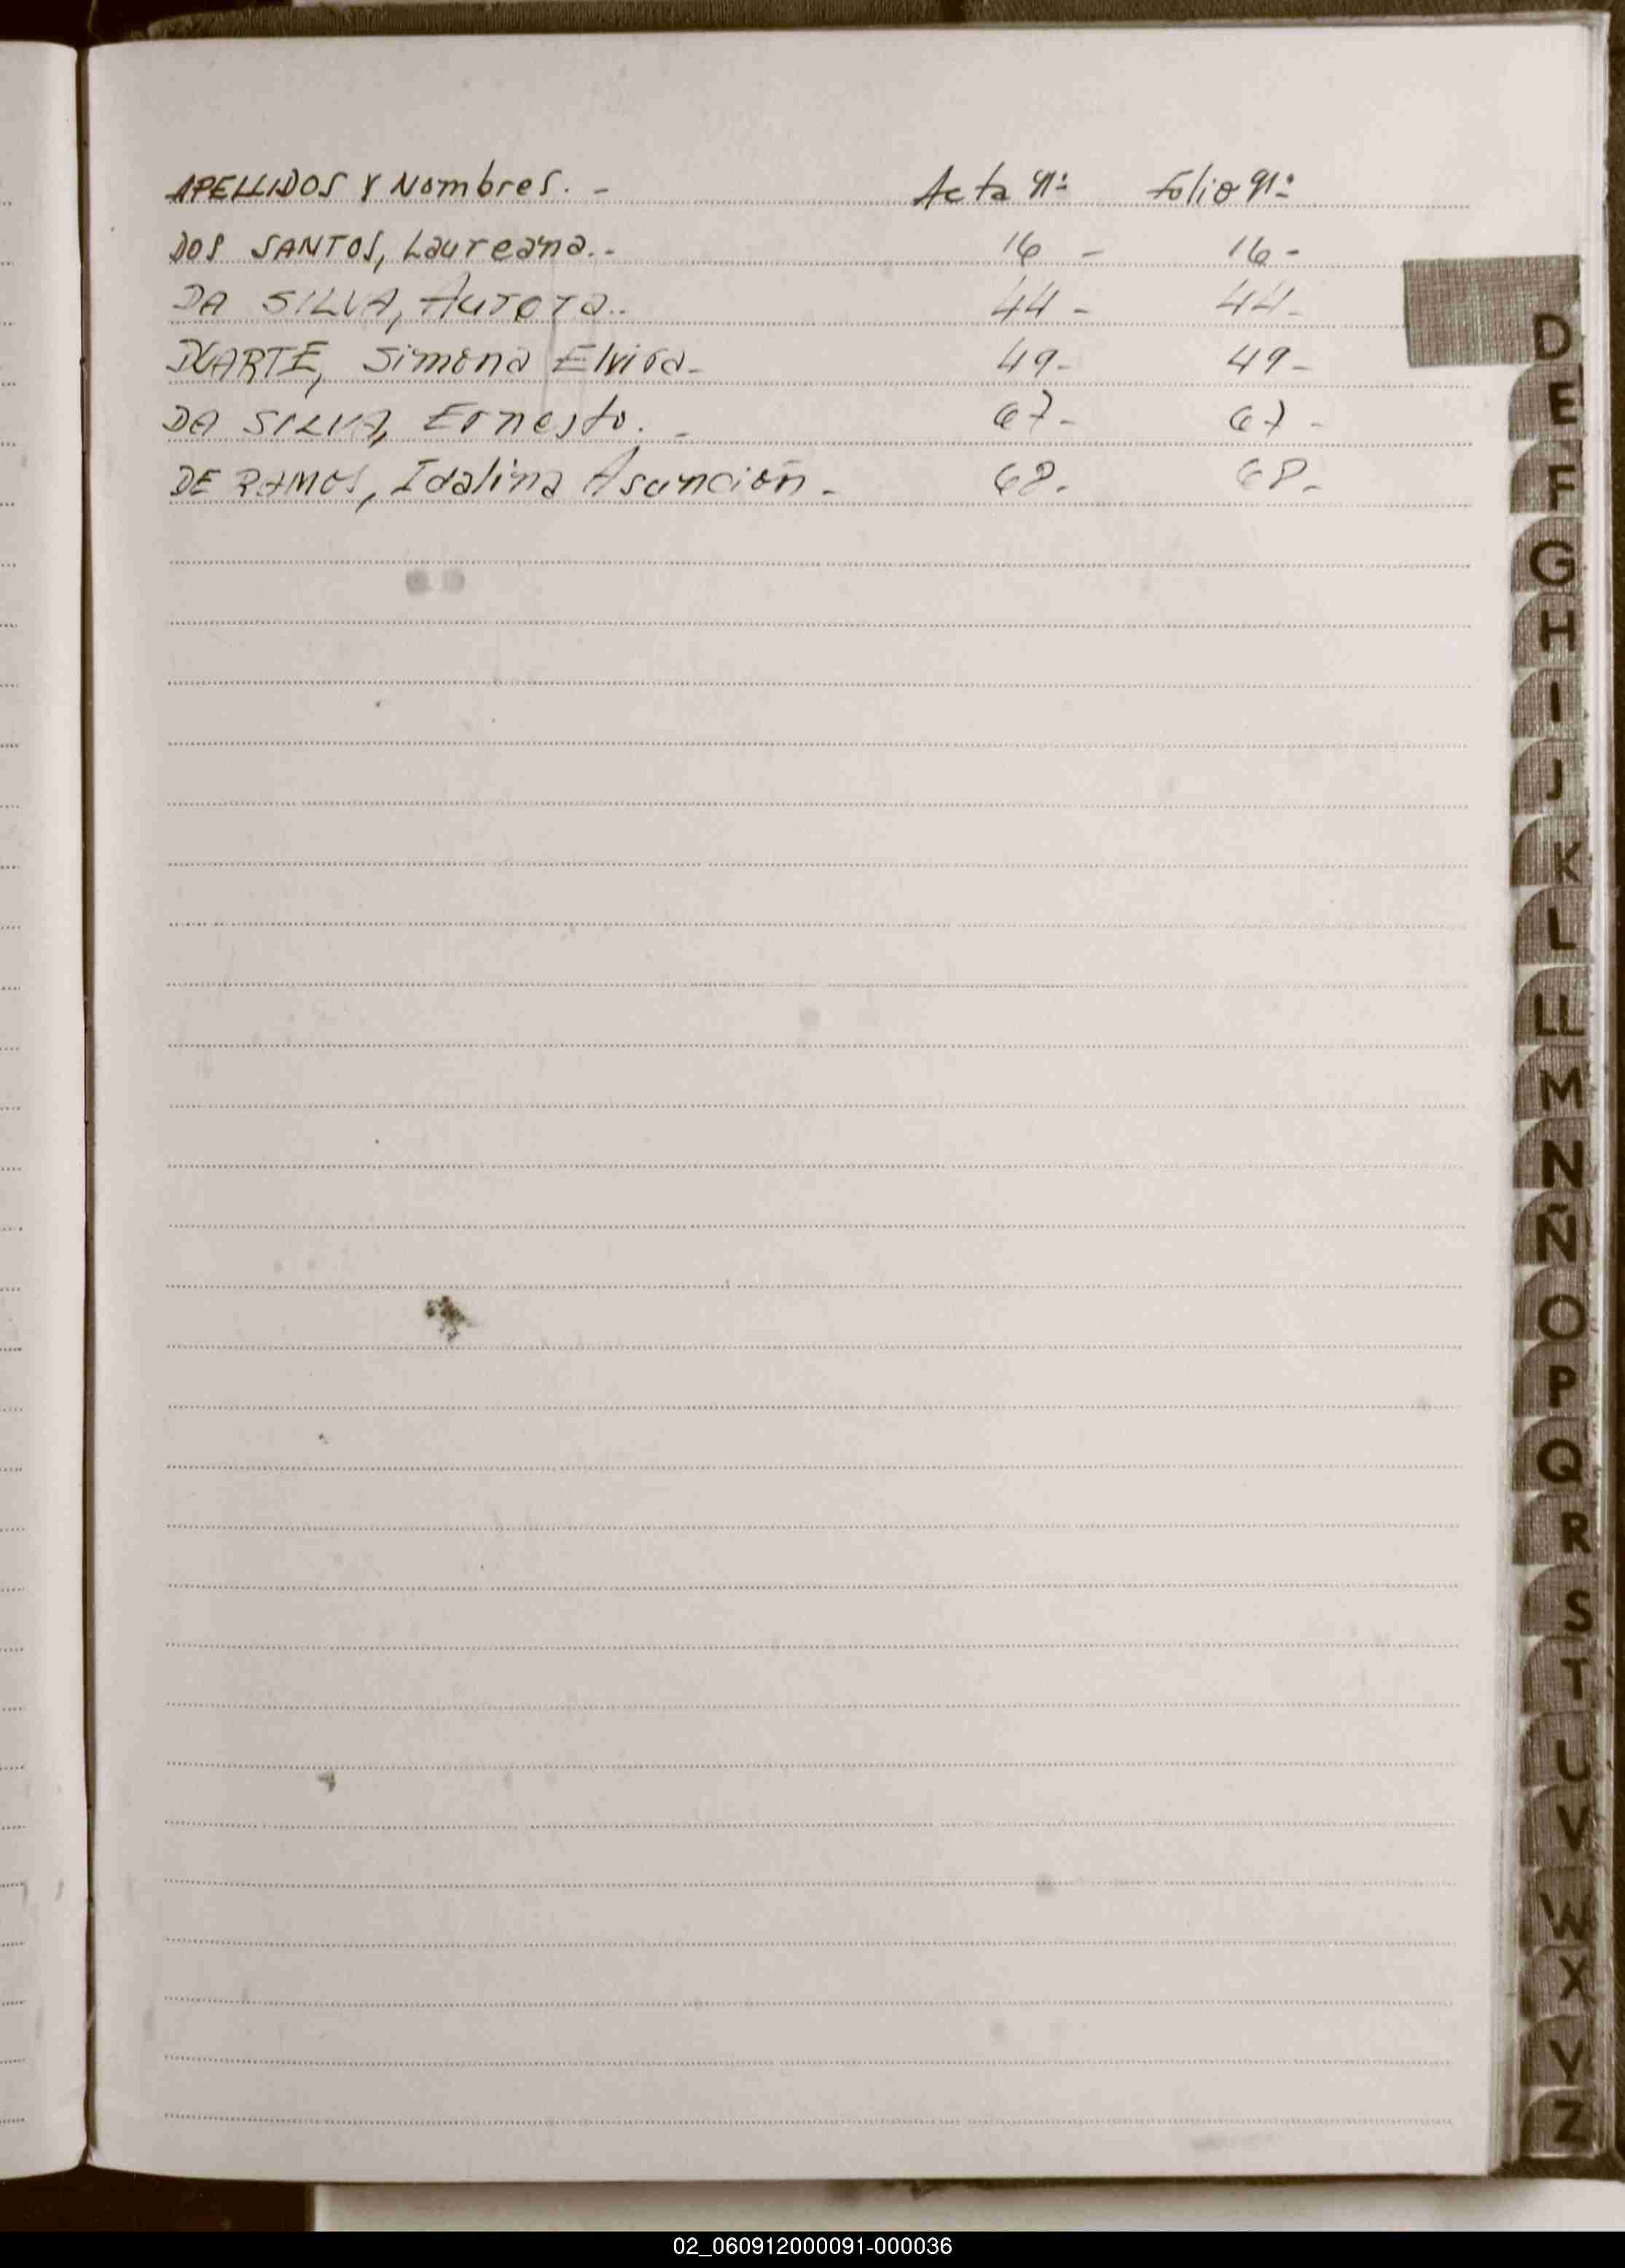 APELLIDOS Y Nombres. - Acta Nº Folio Nº
DOS SANTOS, Laureana.- 16 - 16 -
DA SILVA, Aurora.. 44 - 44 -
DUARTE, Simona Elvira - 49 - 49 -
DA SILVA, Ernesto. - 67 - 67 -
DE RAMOS, Idalina Asunción - 68 - 68 -
D
E
F
G
H
I
J
K
L
LL
M
N
Ñ
O
P
Q
R
S
T
U
V
W
X
Y
Z
02_060912000091-000036